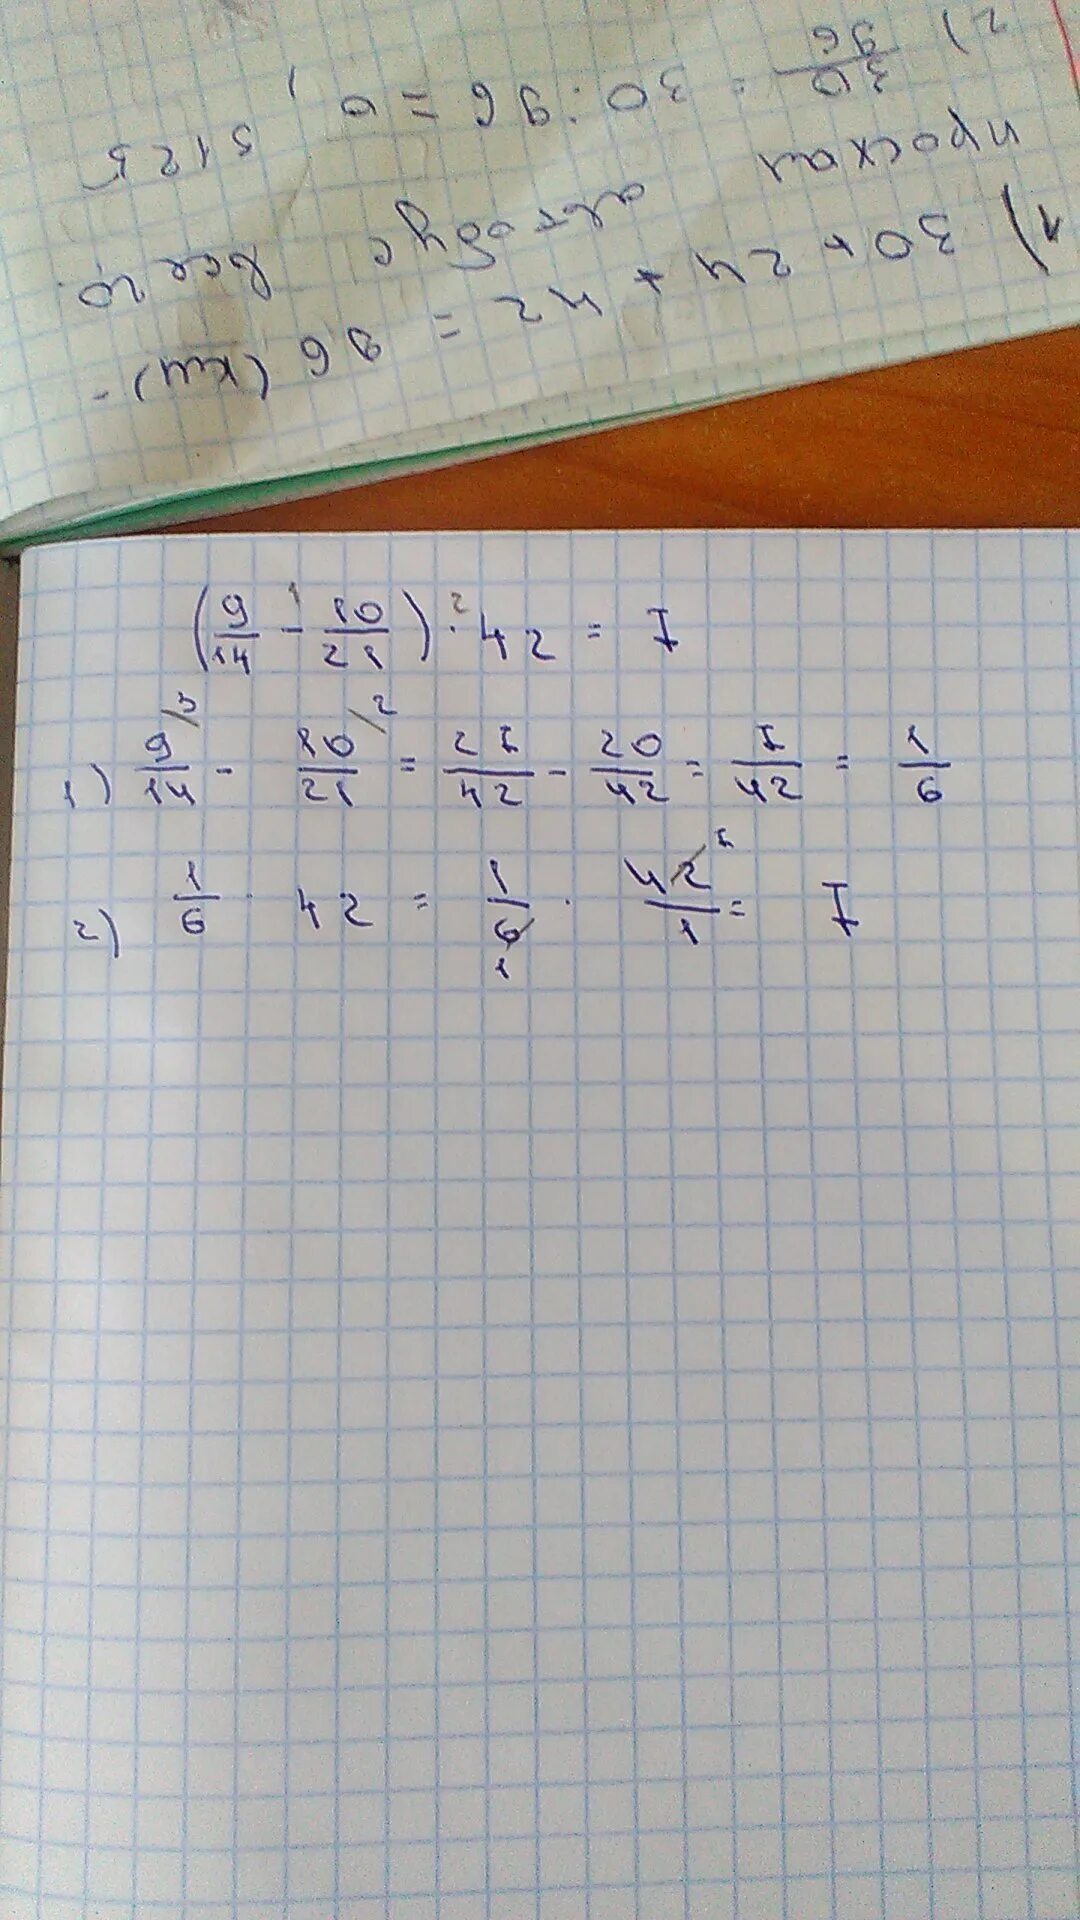 1) 30 + 24 + 42 = 96 (км) -
проехал автобус всего.
2) 30/96 = 30 : 96 = 0, 3125
(9/14 - 10/21) · 42 = 7
1 2
1) 9/14 \3 - 10/21 \2 = 27/42 - 20/42 = 7/42 = 1/6
2) 1/6 · 42 = 1/6 · 42/1 = 7
7
1